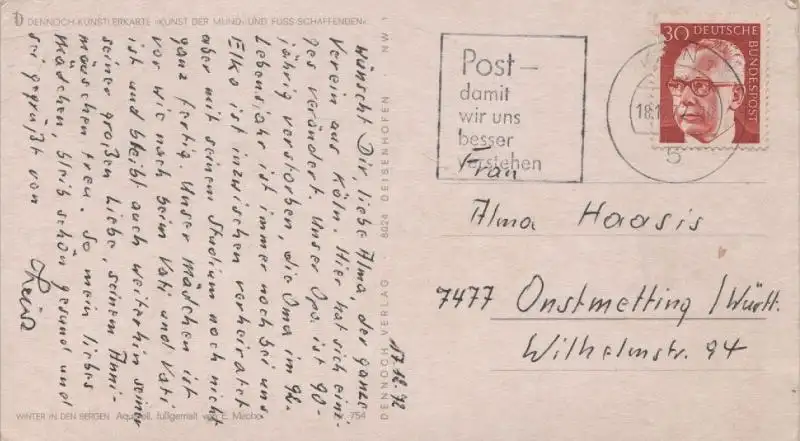 DENNOCH-KÜNSTLERKARTE »KUNST DER MUND- UND FUSS-SCHAFFENDEN«
wünscht Dir liebe Alma, der ganze
Verein aus Köln. Hier hat sich eini-
ges verändert. Unser Opa ist 90-
jährig verstorben, die Oma im 92.
Lebensjahr ist immer noch bei uns.
Elko ist inzwischen verheiratet
aber mit seinem Studium noch nicht
ganz fertig. Unser Mädchen ist
vor wie nach beim Vati und Vati
ist und bleibt auch weiterhin seiner
seiner großen Liebe, seinem Anni-
mäuschen treu. So mein liebes
Mädchen, bleib schön gesund und
sei gegrüßt von
17.12.72
WINTER IN DEN BERGEN Aquarell, fußgemalt von E.
754
DENNOCH VERLAG · 8024 DEISENHOFEN · NW 1
Post –
damit
wir uns
besser
verstehen
KÖLN
18.12
5
30 DEUTSCHE
BUNDESPOST
Frau
Alma Haasis
7477 Onstmetting / Württ.
Wilhelmstr. 94